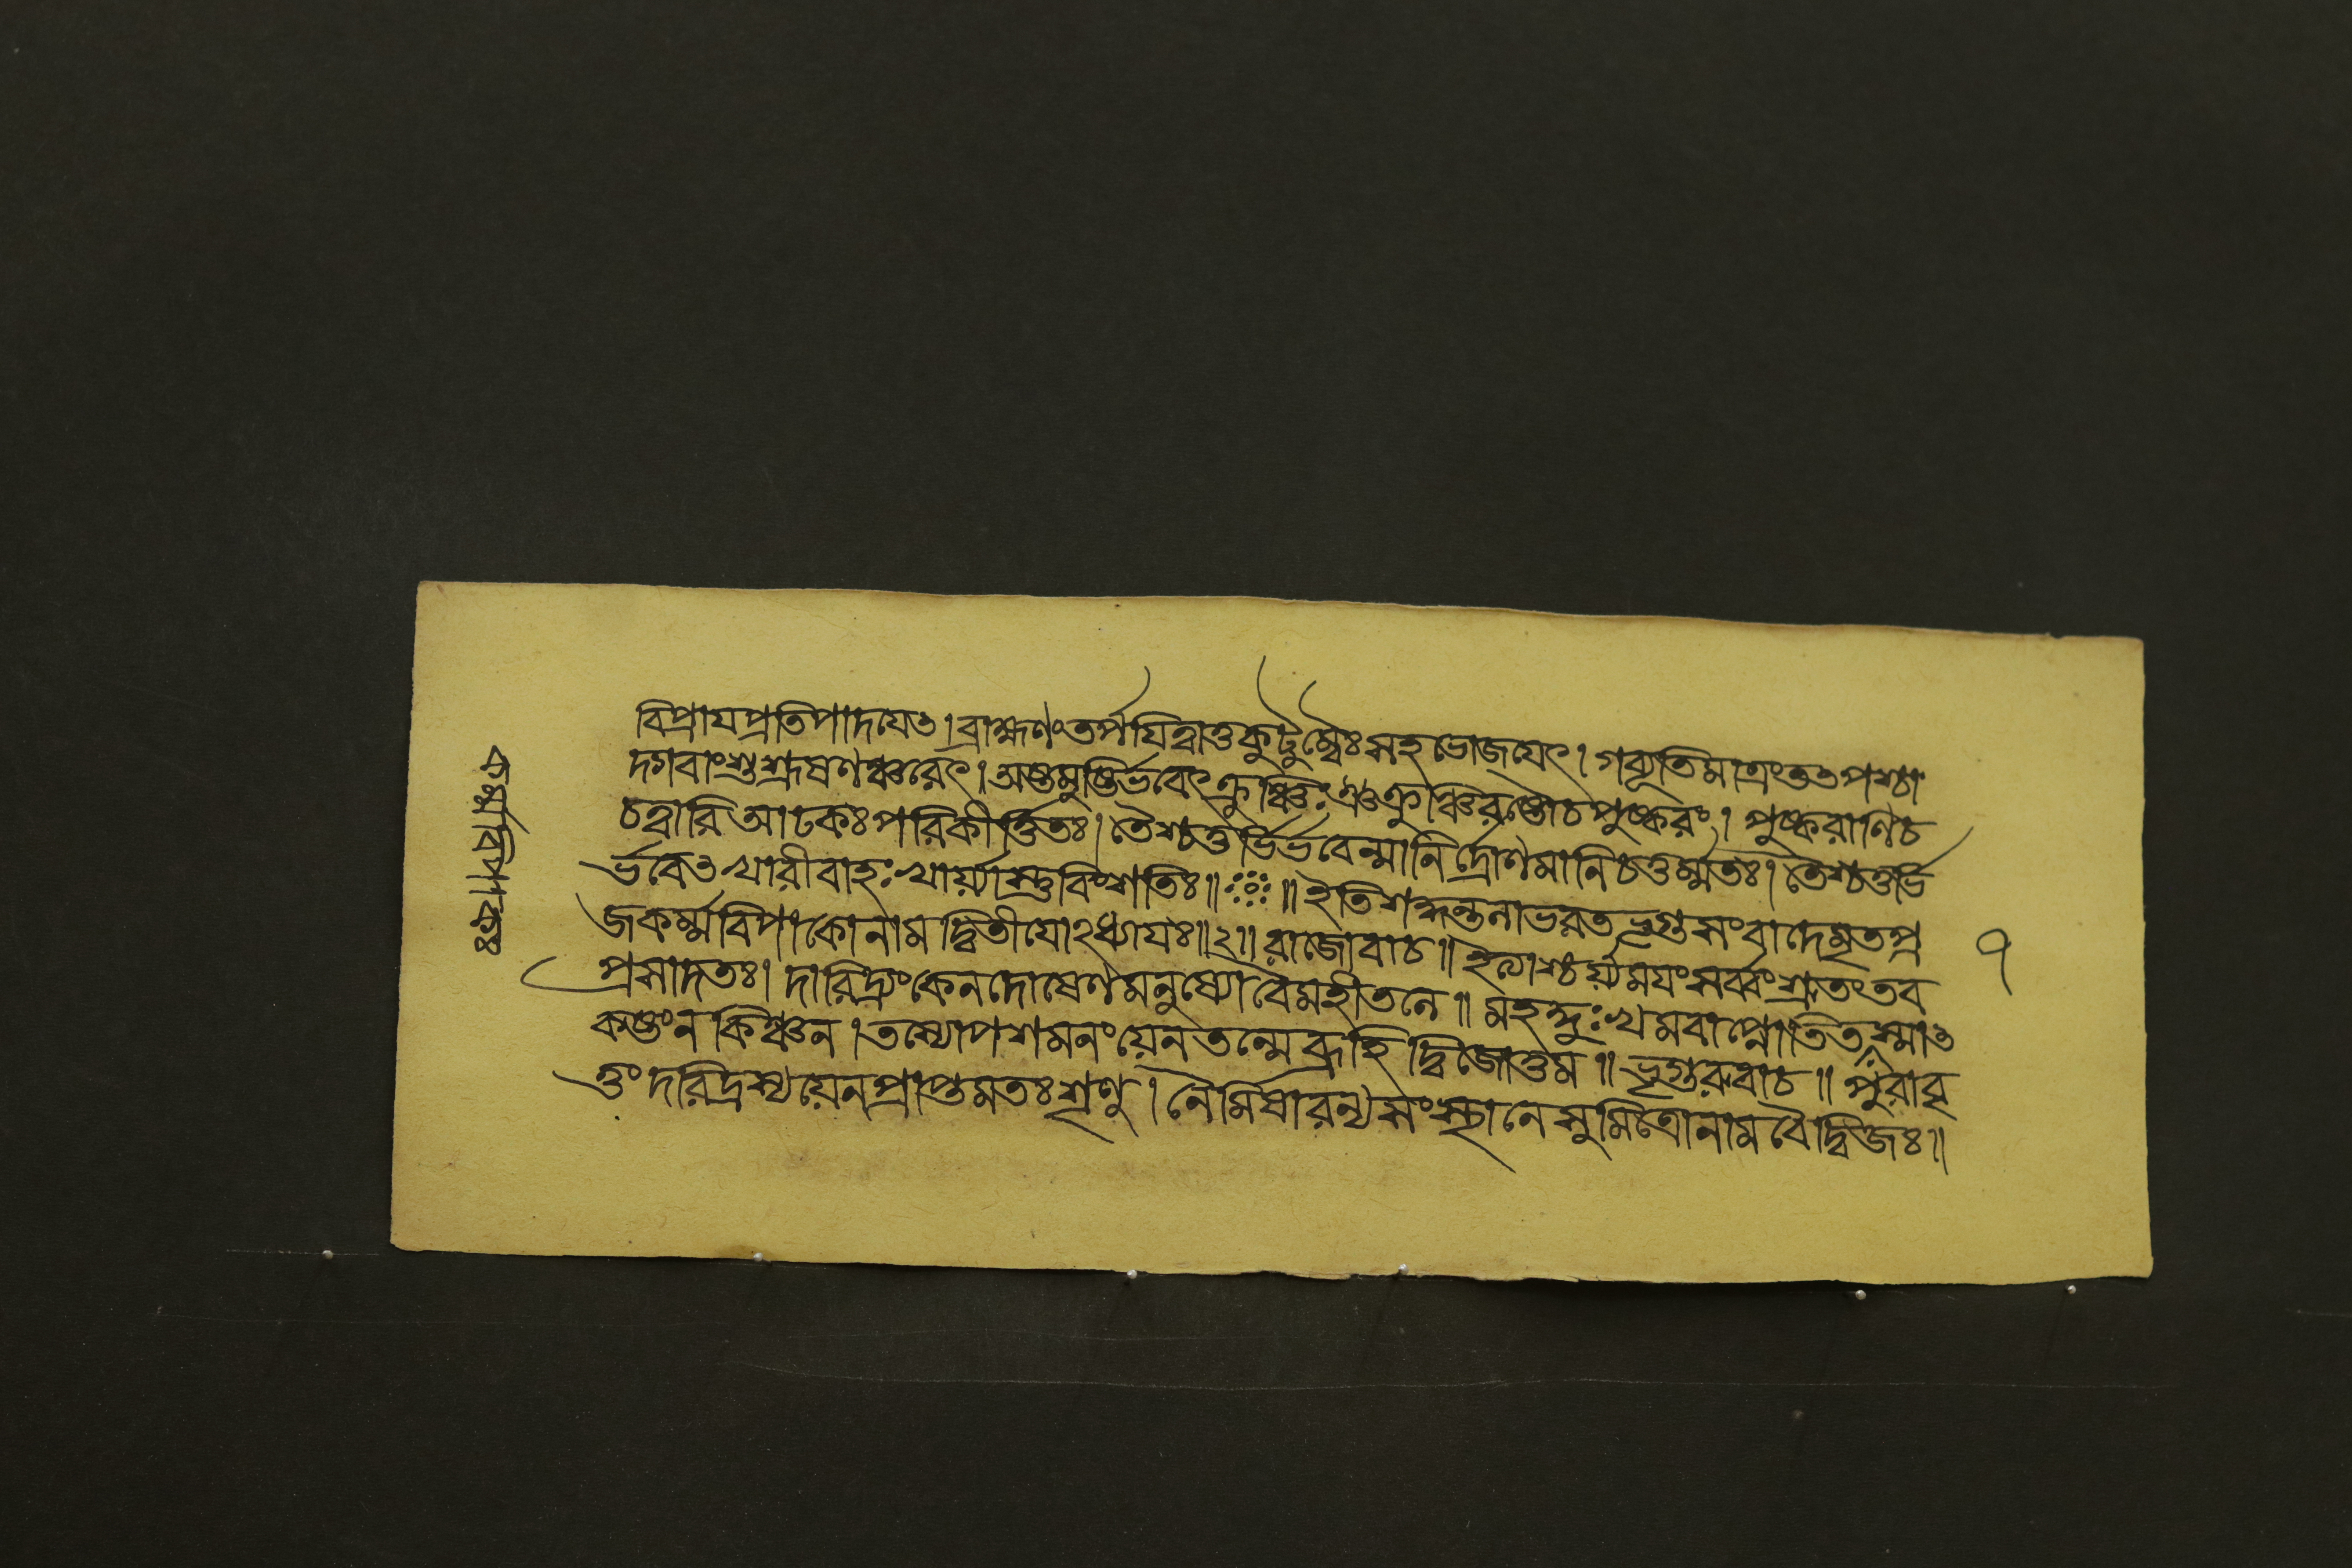 বিপ্রাযপ্রতিপাদযেৎ। ব্রাহ্মণংতর্পযিত্বাতুকুটুম্বৈঃসহভোজয়েৎ। গব্যূতিমাত্রংততপশ্চা
দ্গবাংশুশ্রূষণঞ্চরেৎ। অষ্টমুষ্টির্ভবেৎক্রুঞ্চিঃক্রুঞ্চিরষ্টৌচপুষ্করং। পুষ্করাণিচ
চত্বারিআঢকঃপরিকীর্ত্তিতঃ। তৈশ্চতুর্ভির্ভবেন্মানির্দ্রোণমানিচতুর্ম্মতঃ। তৈশ্চতুর্ভি
র্ভবেৎখারীবাহঃখার্য়্যাস্তুবিংশতিঃ॥ ॥ ইতিশকুন্তলাভরতভৃগুসংবাদেমৃতপ্র
জকর্ম্মবিপাকোনামদ্বিতীযোঽধ্যাযঃ॥২॥ রাজোবাচ॥ ইত্যাশ্চর্য়্যময়ংসর্ব্বংশ্রুতংতব
প্রসাদতঃ। দারিদ্র্যংকেনদোষেণমনুষ্যোবৈমহীতলে॥ মহদ্দুঃখমবাপ্নোতিতস্মাৎ
কষ্টংনকিঞ্চন। তস্যোপশমনংয়েনতন্মেব্রূহিদ্বিজোত্তম॥ ভৃগুরুবাচ॥ পুরাবৃ
ত্তংদরিদ্রস্যয়েনপ্রাপ্তমতঃশৃণু। নৈমিষারন্যসংস্থানেসুমিত্রোনামবৈদ্বিজঃ॥
৭